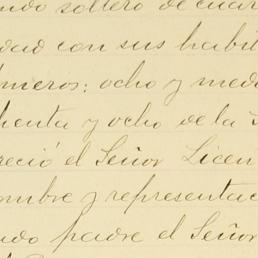 ndo soltero de cuar
dad con sus habit
úmeros: ocho y med
chenta y ocho de la
reció el Señor Licen
ombre y representac
ndo padre el Señor